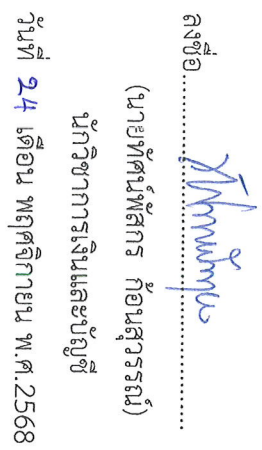 ลงชื่อ................................................
(นายทัศน์พัสกร ก้อนสุวรรณ์)
นักวิชาการเงินและบัญชี
วันที่ 24 เดือน พฤศจิกายน พ.ศ.2568